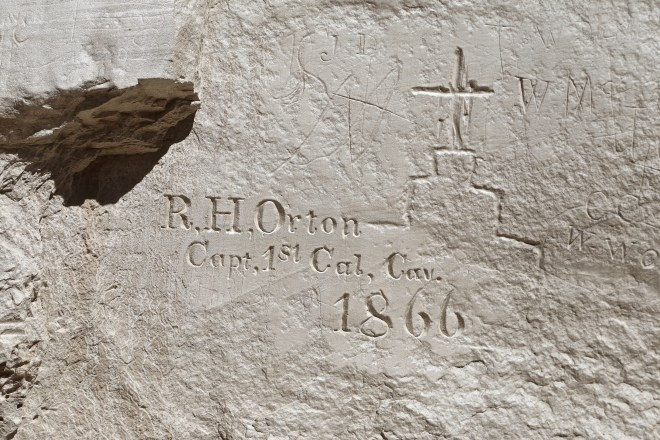 R. H. Orton
Capt, 1st Cal, Cav.
1866
W M